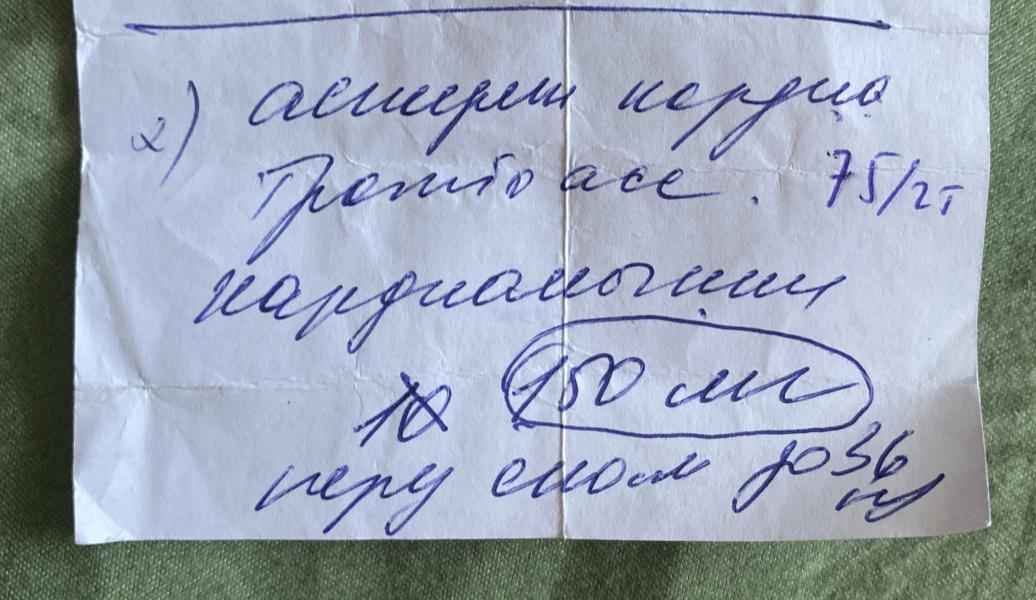 2) аспирин кардио
Тромбо асс. 75/2т
кардиомагнил
150 мг
перед сном до 36 н